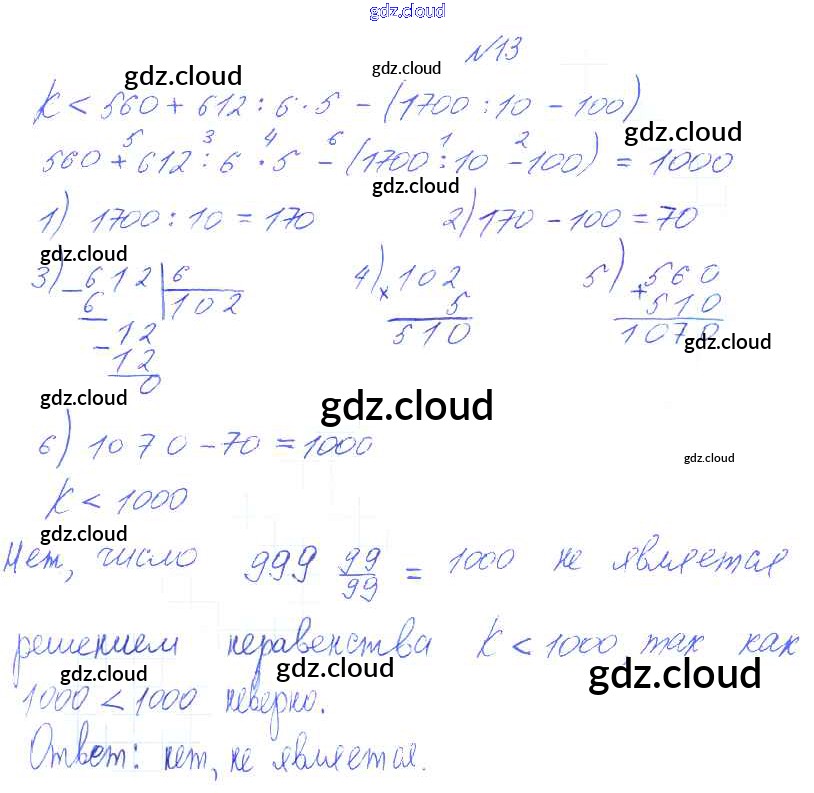 gdz.cloud
№13
gdz.cloud gdz.cloud
K < 560 + 612 : 6 · 5 − (1700 : 10 − 100)
gdz.cloud
5 3 4 6 1 2
560 + 612 : 6 · 5 − (1700 : 10 − 100) = 1000
gdz.cloud
1) 1700 : 10 = 170 2) 170 − 100 = 70
gdz.cloud
3) − 612 | 6 4) × 102 5) + 560
6 102 5 510
− 12 510 1070
12 gdz.cloud
0
gdz.cloud gdz.cloud
6) 1070 − 70 = 1000
gdz.cloud
K < 1000
gdz.cloud
Нет, число 999 99/99 = 1000 не является
решением неравенства K < 1000, так как
gdz.cloud gdz.cloud gdz.cloud
1000 < 1000 неверно.
Ответ: нет, не является.